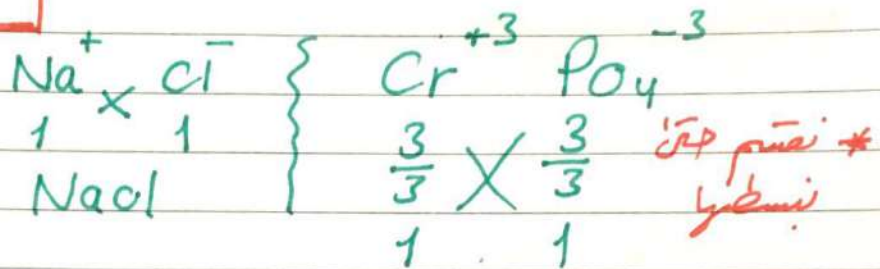 Na⁺ × Cl⁻
1 1
NaCl
Cr⁺³ PO₄⁻³
3/3 × 3/3
1 1
* نقسم حتى
نبسطها